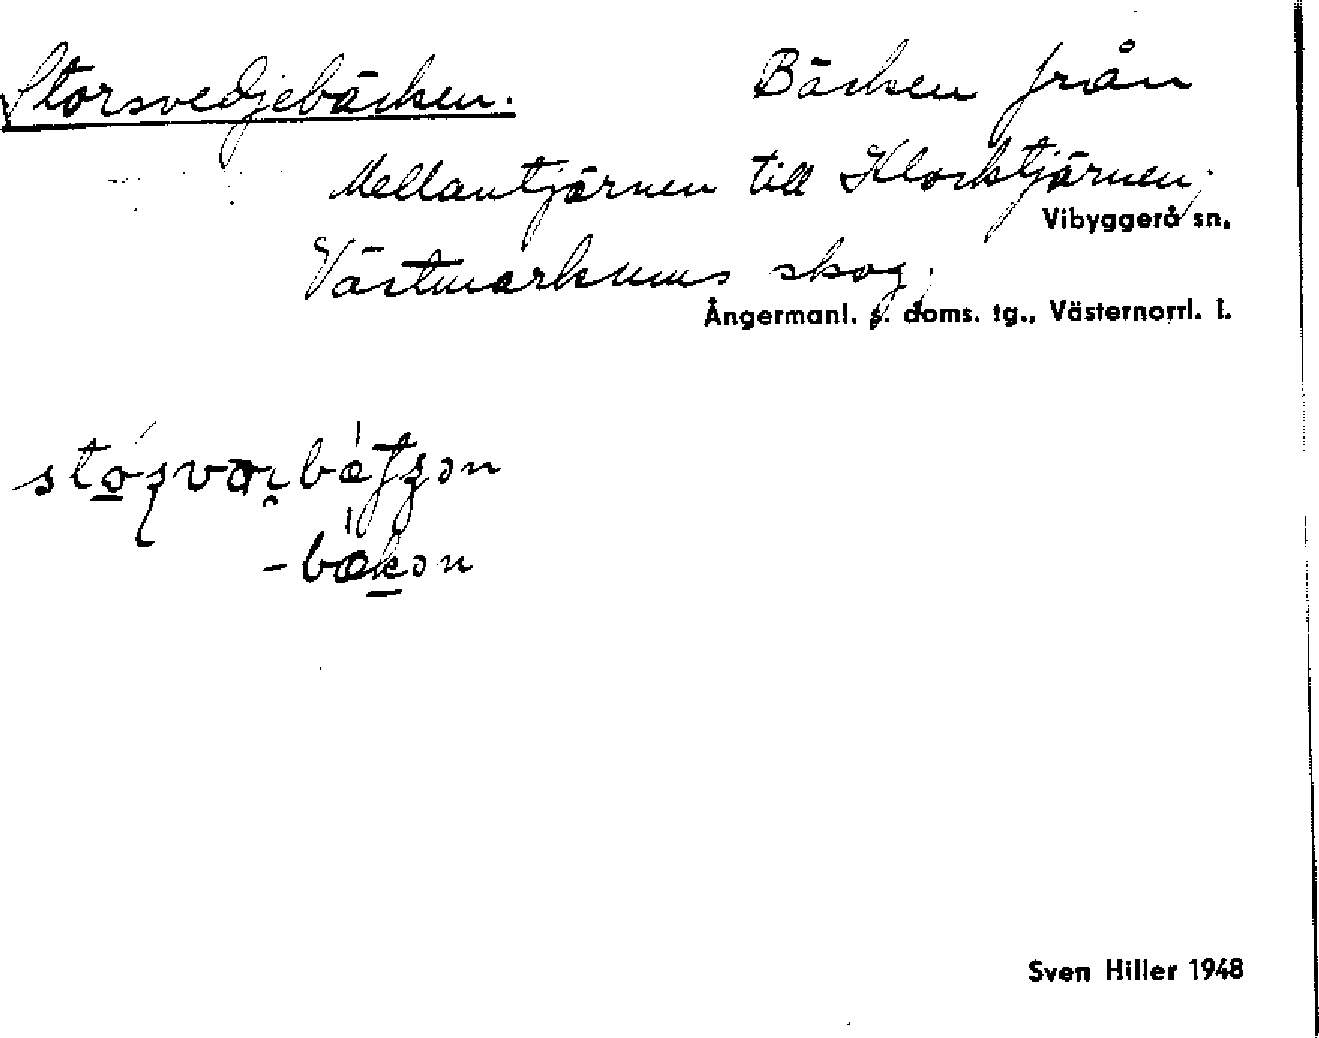 Storsvedjebäcken. Bäcken från
Mellantjärnen till Klocktjärnen,
Vibyggerå sn.
Västmarkums skog.
Ångermanl. s. doms. tg., Västernorrl. l.
-bækən
Sven Hiller 1948